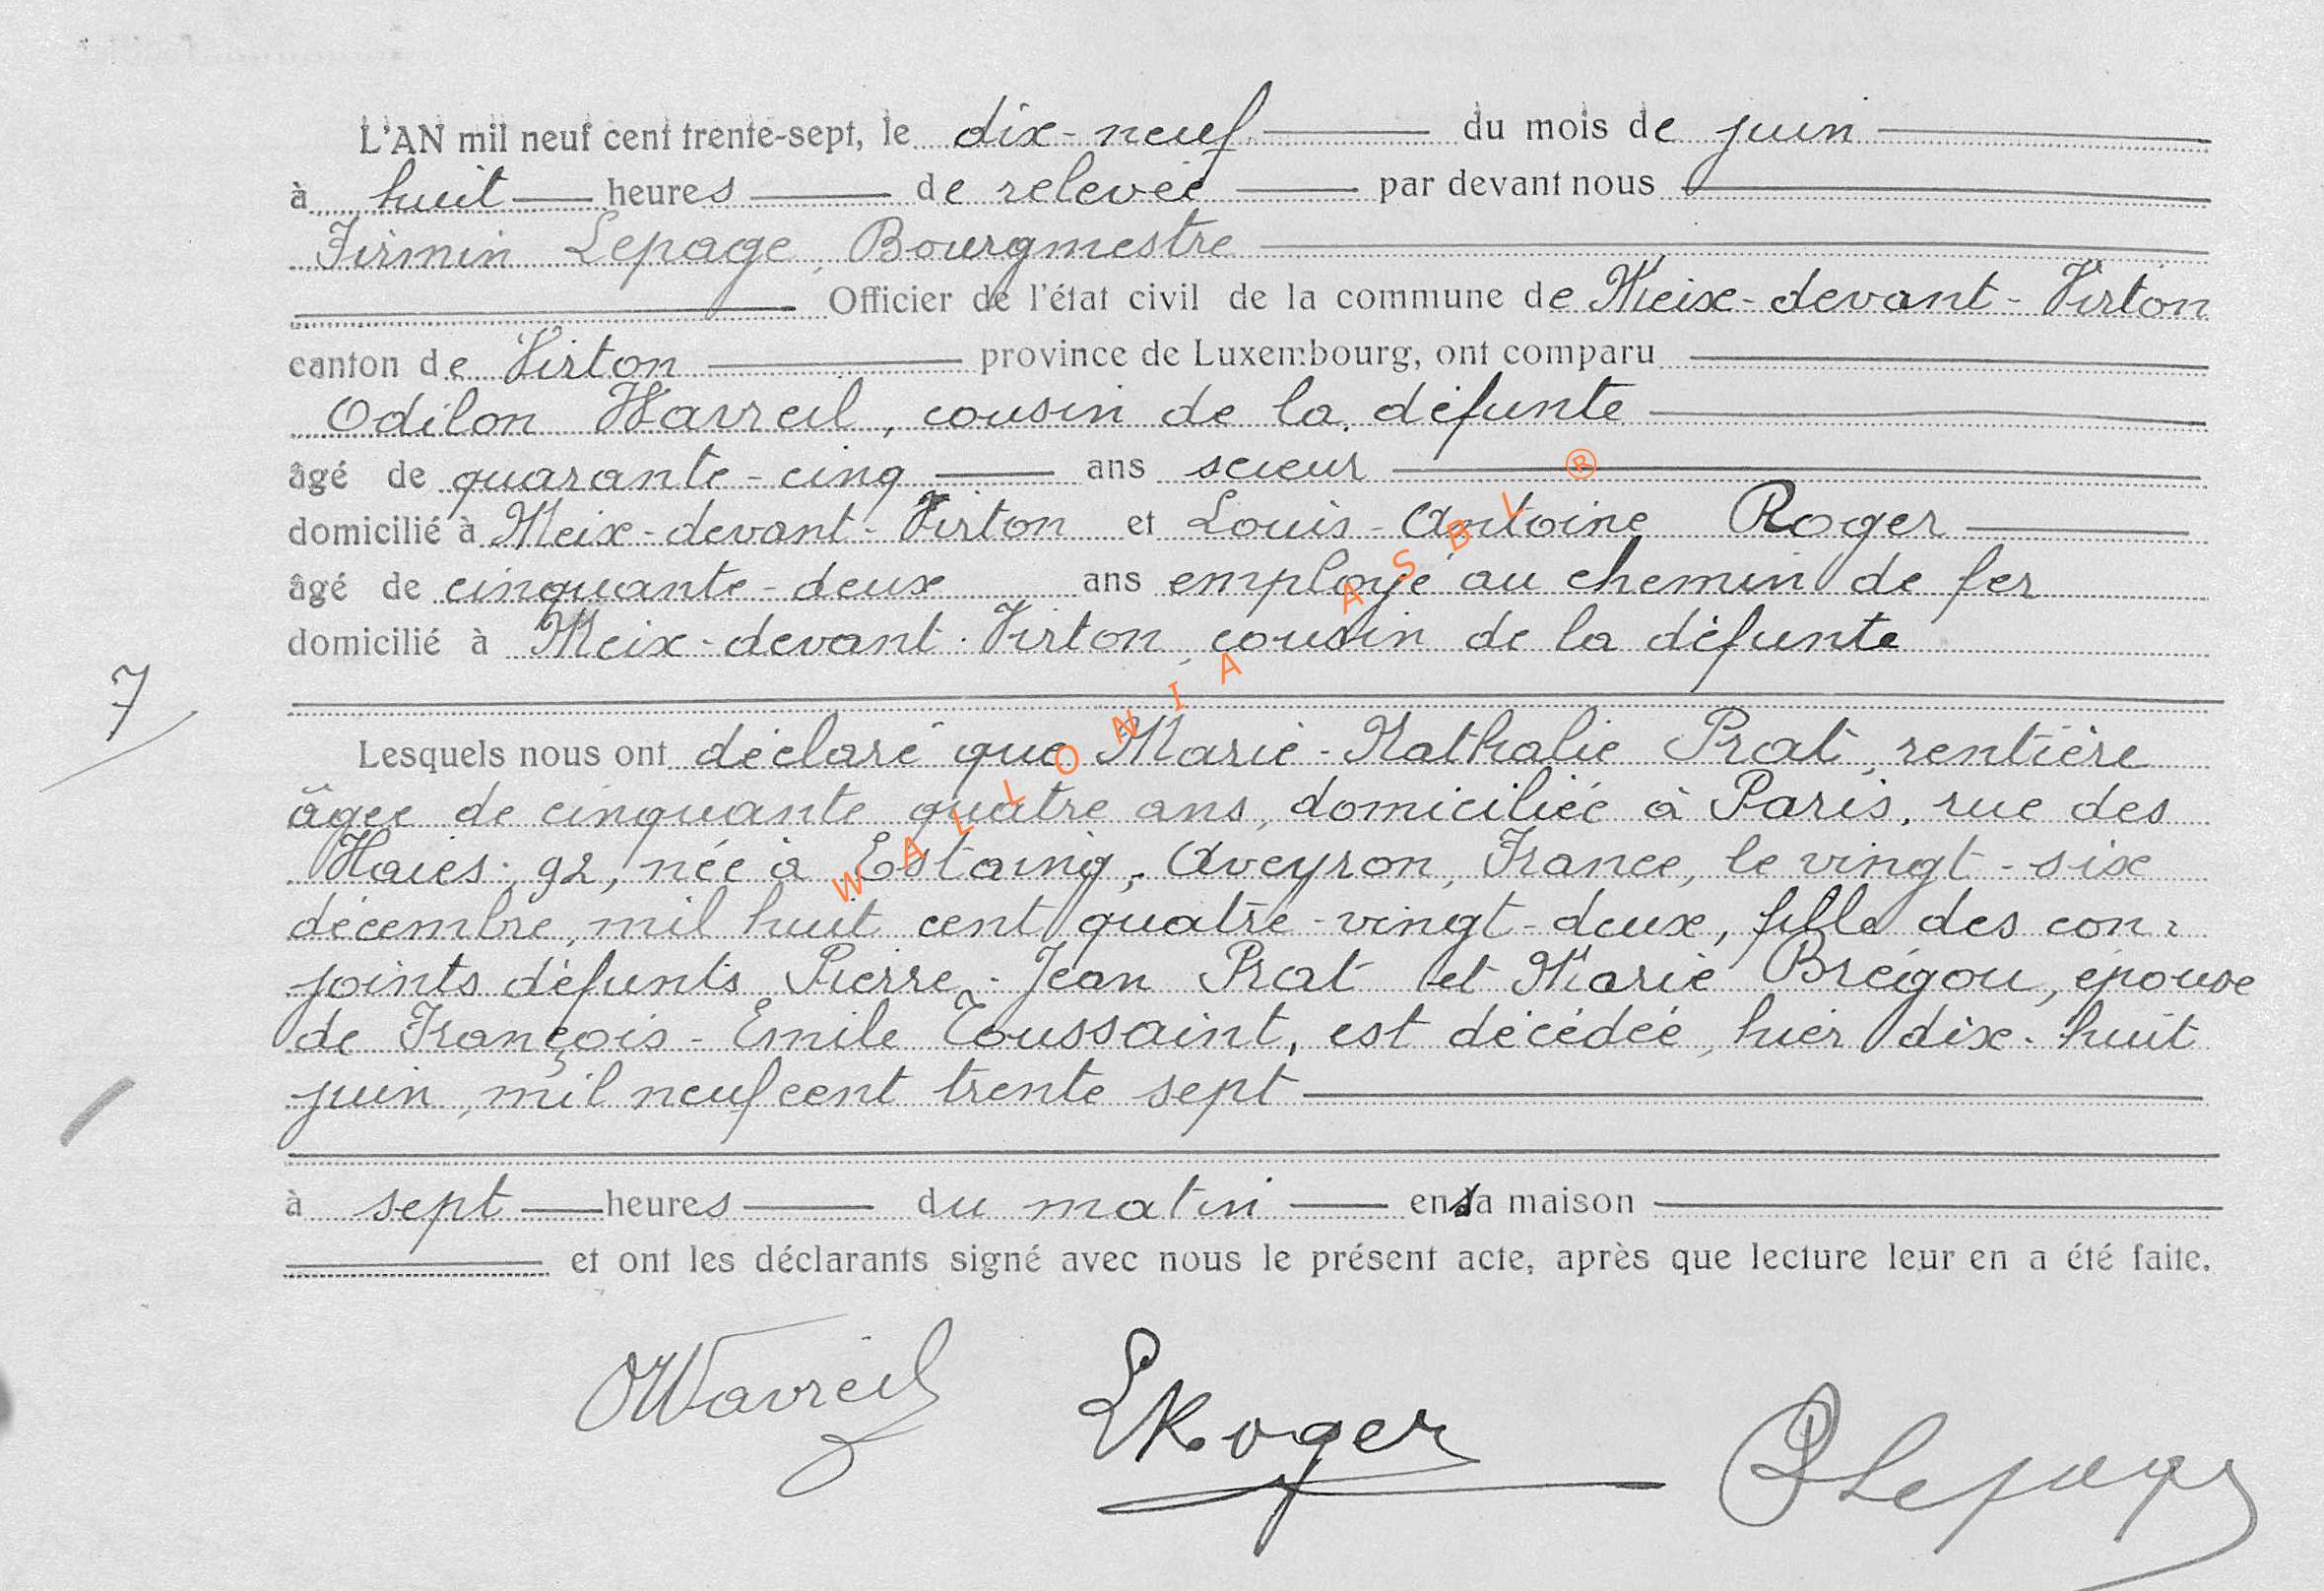 L'AN mil neuf cent trente-sept, le dix-neuf du mois de juin
à huit heures de relevée par devant nous
Firmin Lepage, Bourgmestre
Officier de l'état civil de la commune de Meix-devant-Virton
canton de Virton province de Luxembourg, ont comparu
Odilon Wavreil, cousin de la défunte
âgé de quarante-cinq ans scieur
domicilié à Meix-devant-Virton et Louis-Antoine Roger
âgé de cinquante-deux ans employé au chemin de fer
domicilié à Meix-devant-Virton, cousin de la défunte
7
Lesquels nous ont déclaré que Marie-Nathalie Prat, rentière
âgée de cinquante quatre ans, domiciliée à Paris, rue des
Haies, 92, née à Estaing, Aveyron, France, le vingt-six
décembre, mil huit cent quatre-vingt-deux, fille des con-
joints défunts Pierre-Jean Prat et Marie Brégou, épouse
de François-Emile Toussaint, est décédée, hier dix-huit
juin, mil neuf cent trente sept
à sept heures du matin en sa maison
et ont les déclarants signé avec nous le présent acte, après que lecture leur en a été faite.
OWavreil LRoger Lepage
WALLONIA ASBL ®